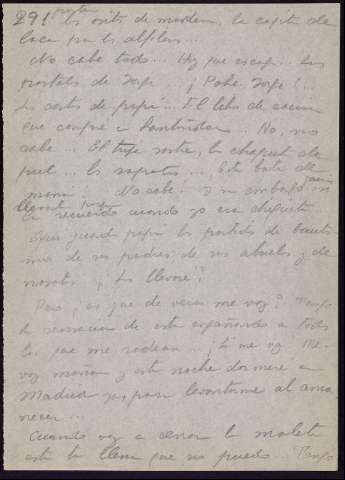 291
los osito de madera, la cajita de
laca para los alfileres...
No cabe todo... Hay que escoger... Las
postales de Jorge... ¡Pobre Jorge!...
Las cartas de papá... El libro de cocina
que compré en
cabe... El traje sastre, la chaqueta de
piel... los zapatos... Esta bata de
mamá! No cabe! Y sin embargo
llevarte
de recuerdo cuando yo era chiquita
guardó papá las partidas de bautis-
mo de sus padres, de sus abuelos y de
nosotros ¡Las llevaré!
Pero, ¿es que de veras me voy? Tengo
la sensación de estar engañando a todos
los que me rodean... ¡Sí me voy! Me
voy mañana y esta noche dormiré en
Madrid para levantarme al ama
necer...
Cuando voy a cerrar la maleta
está tan llena que no puedo... Tengo